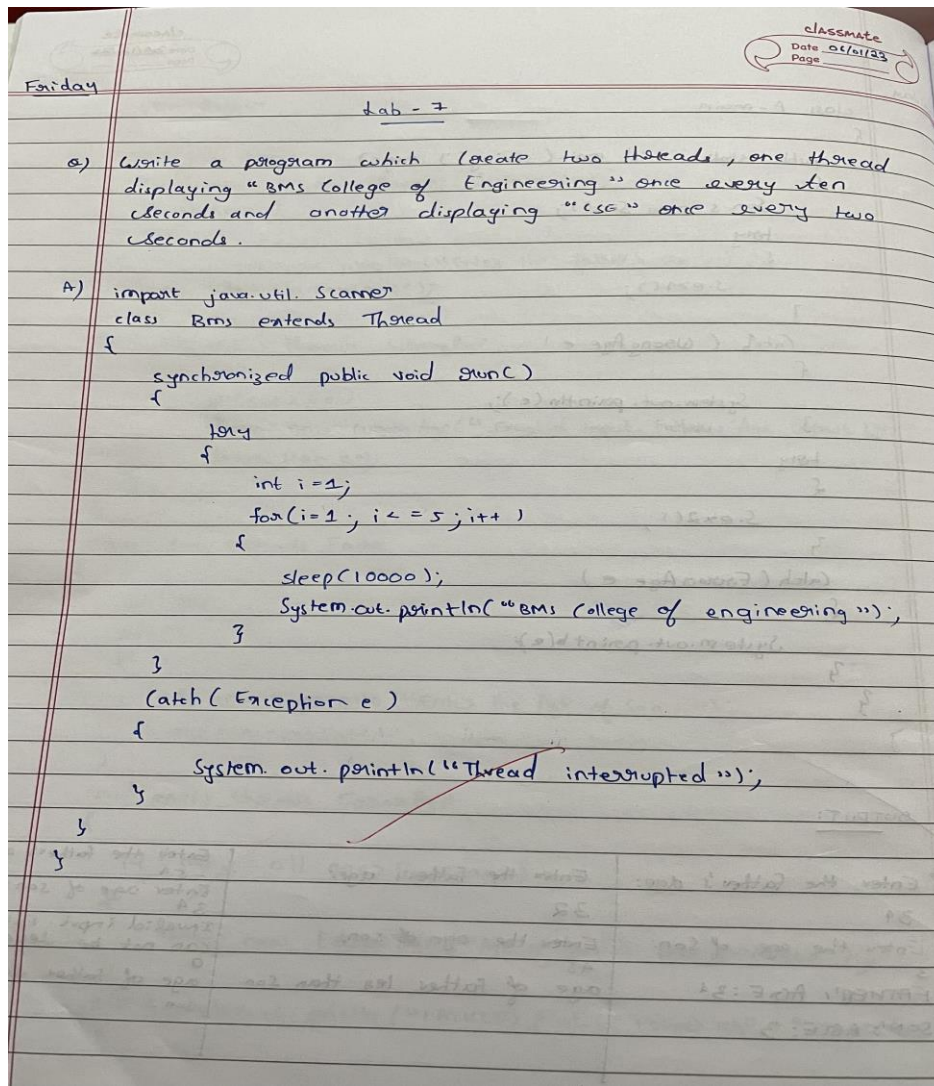 classmate
Date 06/01/23
Page
Friday
Lab - 7
Q) Write a program which create two threads, one thread
displaying "BMS College of Engineering" once every ten
seconds and another displaying "CSE" once every two
seconds.
A) import java.util. Scanner
class Bms extends Thread
{
synchronized public void run()
{
try
{
int i = 1;
for(i = 1; i < = 5; i++)
{
sleep(10000);
System.out.println("BMS College of engineering");
}
}
Catch( Exception e )
{
System. out. println("Thread interrupted");
}
}
}